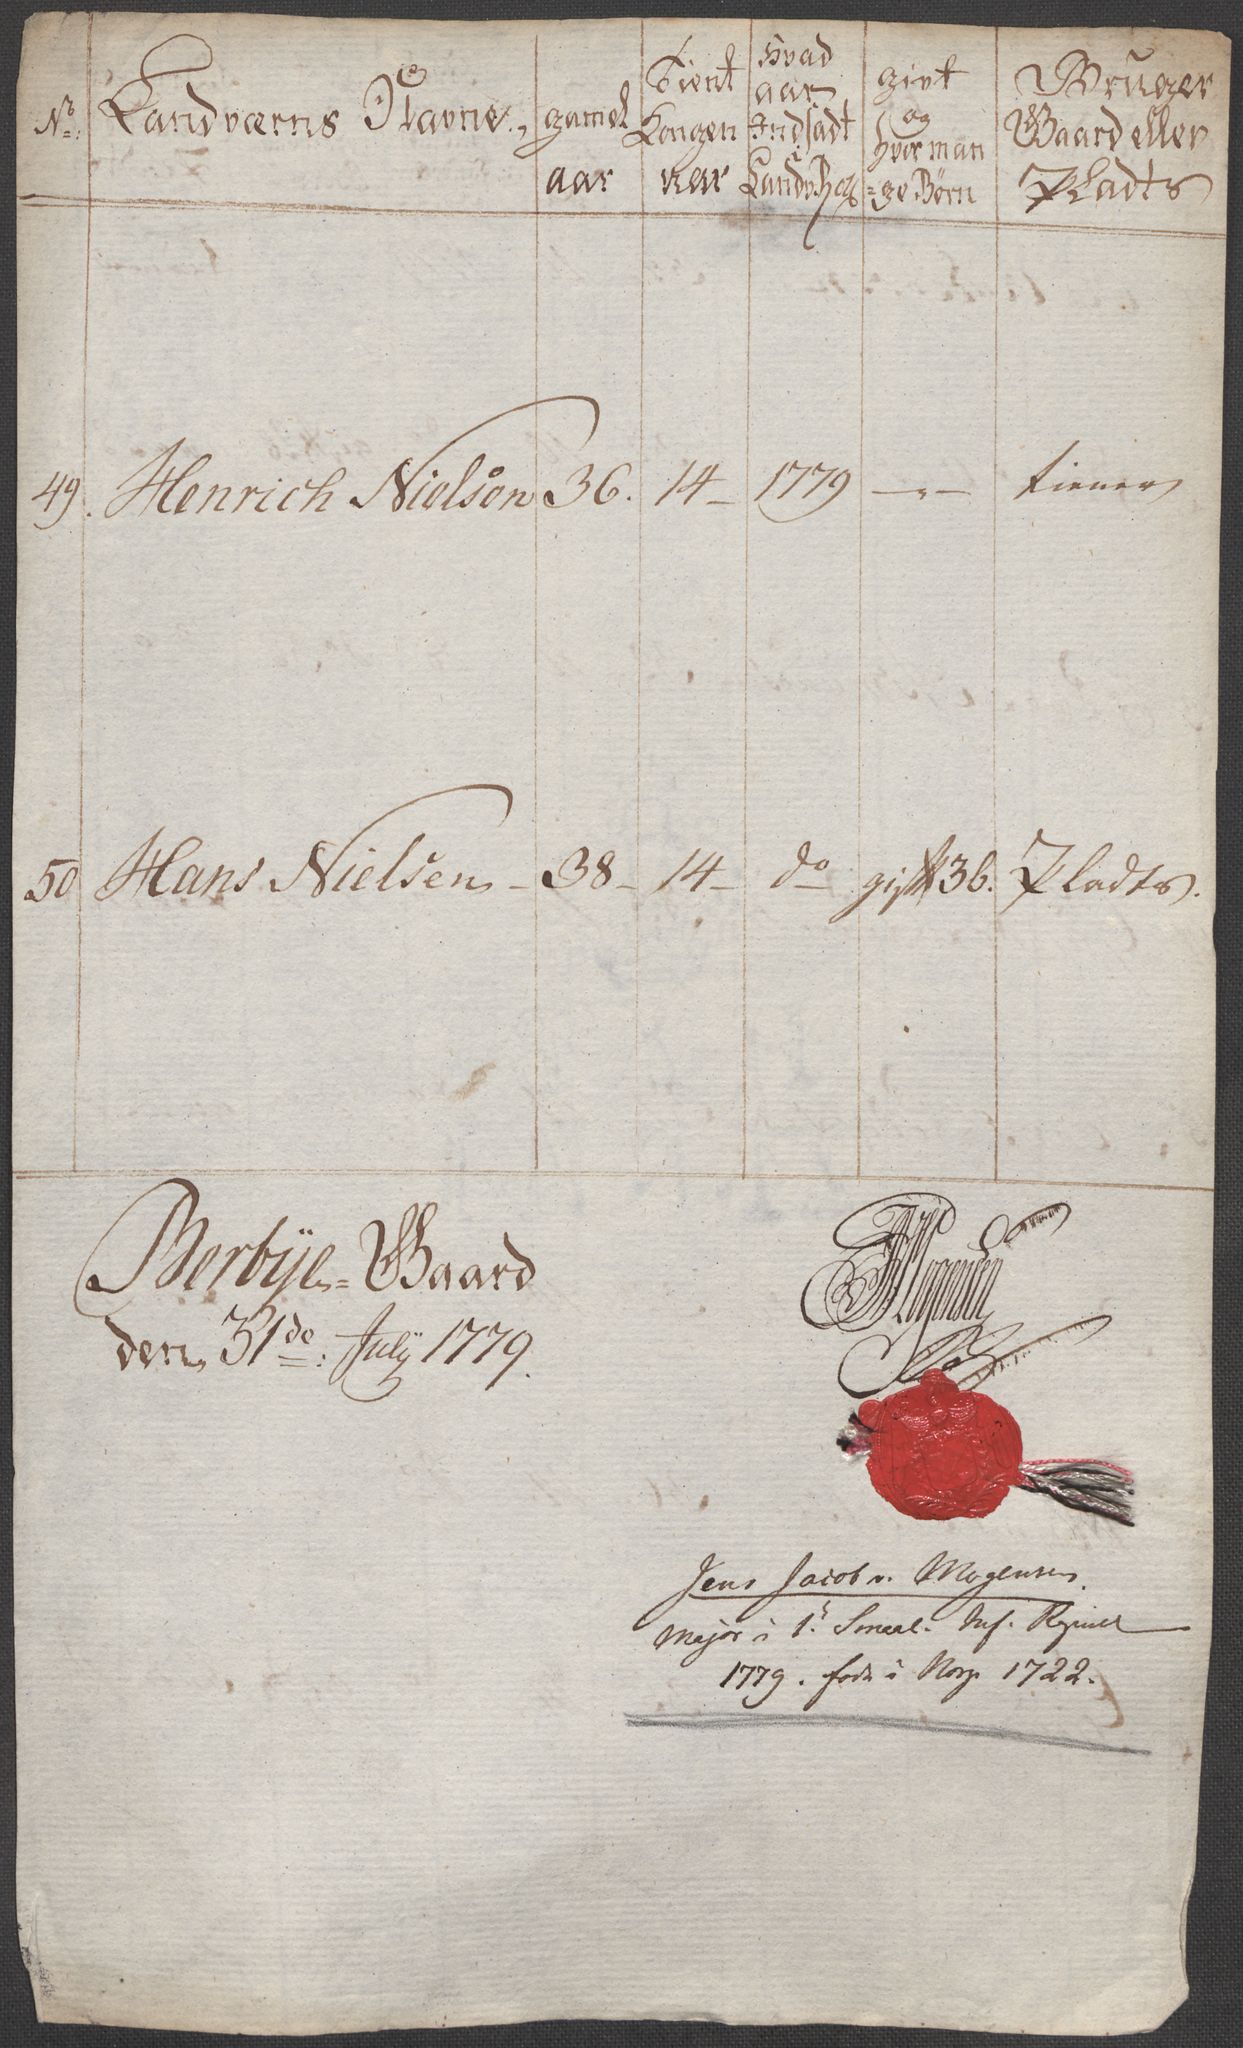 No: Landværns Navne, gamel aar Tient Kongen aar Hvad aar Indsadt i Landv: givt og hvor man=ge Børn Bruger Gaard eller Pladts
49. Henrich Nielsen 36. 14 – 1779 —„— tiener
50 Hans Nielsen – 38 – 14 – do gift 3 b. Pladts.
Berbye = Gaard
den 31de: Julÿ 1779.
Mogensen
Jens Jacob v. Mogensen.
Major i 1. Smaal. Inf. Regimet
1779. født i Norge 1722.